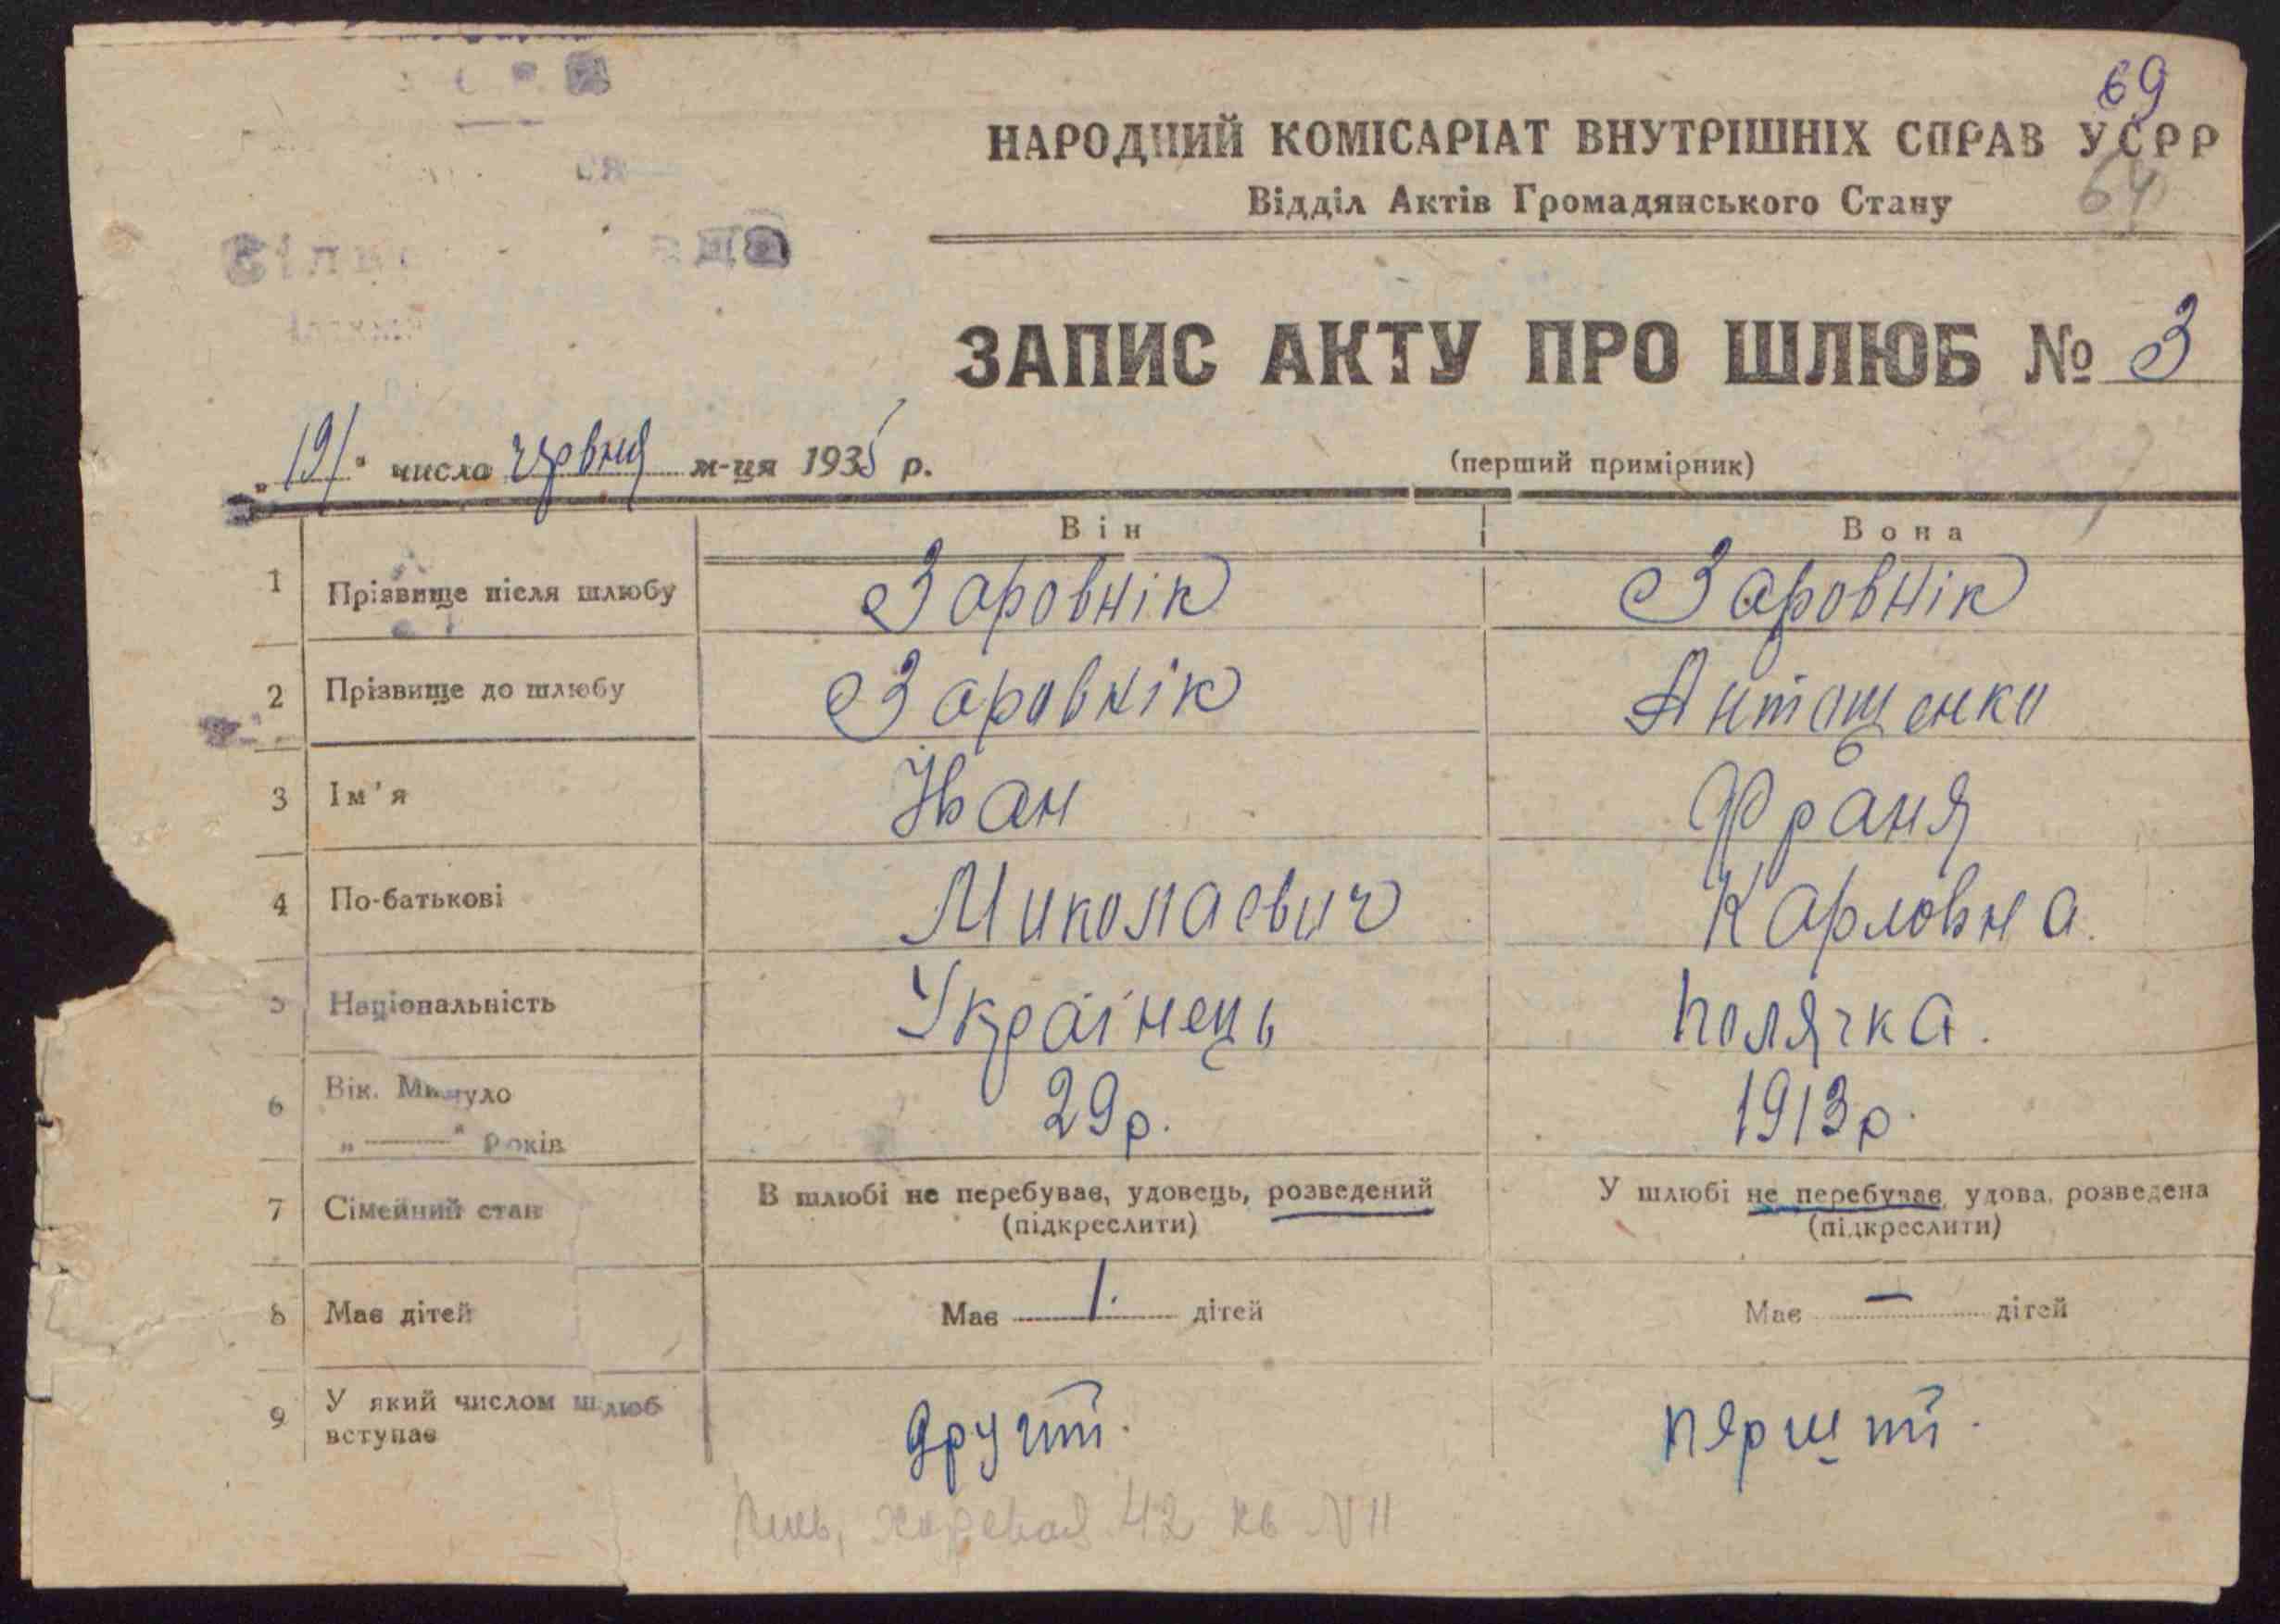 69
НАРОДНИЙ КОМІСАРІАТ ВНУТРІШНІХ СПРАВ УСРР
Відділ Актів Громадянського Стану
64
ЗАПИС АКТУ ПРО ШЛЮБ № 3
„19" числа червня м-ця 1935 р.
(перший примірник)
Він Вона
1 Прізвище після шлюбу Заровнік Заровнік
2 Прізвище до шлюбу Заровнік Антощенко
3 Ім'я Іван Франя
4 По-батькові Миколаевич Карловна.
5 Національність Українець Полячка.
6 Вік. Минуло 29р. 1913р.
„——" Років
7 Сімейний стан В шлюбі не перебував, удовець, розведений У шлюбі не перебуває, удова, розведена
(підкреслити) (підкреслити)
8 Має дітей Має 1. дітей Має — дітей
9 У який числом шлюб вступає другий. перший.
42 кв N 11